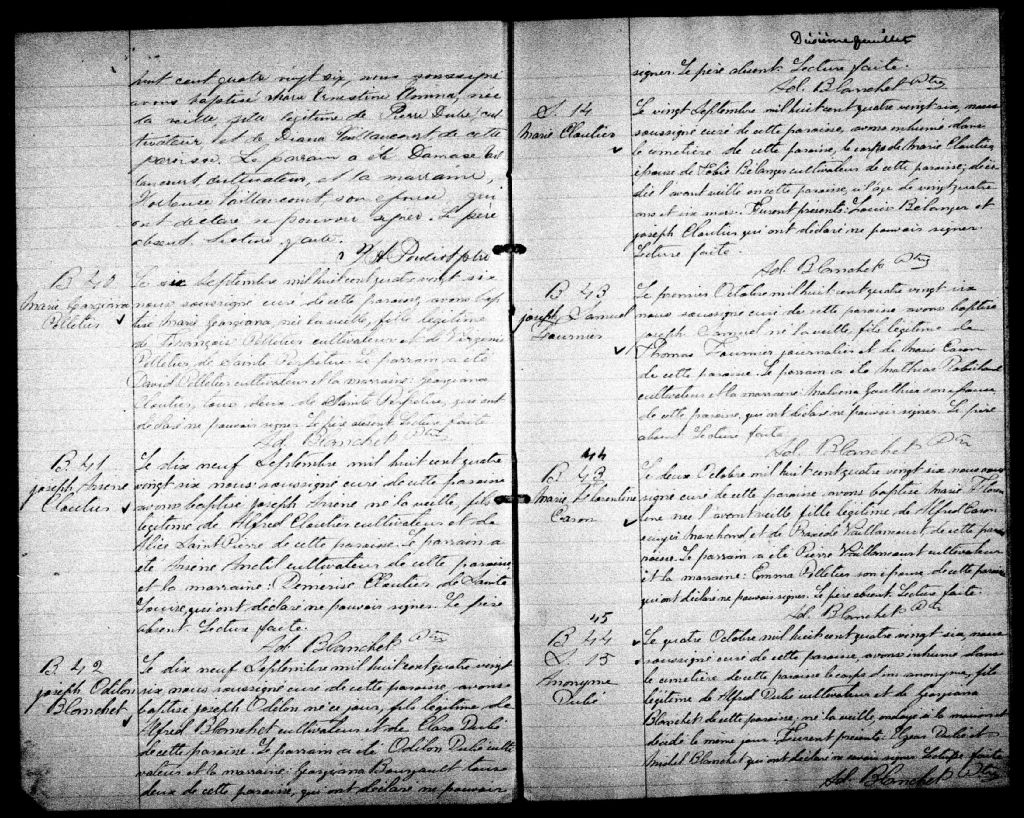 huit cent quatre vingt six, nous soussigné
avons baptisé Marie Ernestine Amma, née
la veille fille légitime de Pierre Dubé cul
tivateur et de Diana Vaillancourt de cette
paroisse. Le parrain a été Damase Vail
lancourt, cultivateur, et la marraine,
Vaillancourt son épouse, qui
ont déclaré ne pouvoir signer. Le père
absent. Lecture faite.
ptre
B. 40
Marie Georgiana
Pelletier
Le six Septembre mil huit cent quatre vingt six
nous soussigné curé de cette paroisse, avons bap
tisé Marie Georgiana, née la veille, fille légitime
de François Pelletier cultivateur et de Virginie
Pelletier de Sainte Perpétue. Le parrain a été
David Pelletier cultivateur et la marraine: Georgiana
Cloutier, tous deux de Sainte Perpétue, qui ont
déclaré ne pouvoir signer. Le père absent. Lecture faite
Ad. Blanchet Ptre
B. 41
Joseph Arsène
Cloutier
Le dix neuf Septembre mil huit cent quatre
vingt six nous soussigné curé de cette paroisse
avons baptisé Joseph Arsène né la veille, fils
légitime de Alfred Cloutier cultivateur et de
Alice Saint Pierre de cette paroisse. Le parrain a
été Arsène Anctil cultivateur de cette paroisse,
et la marraine: Démerise Cloutier de Sainte
Louise, qui ont déclaré ne pouvoir signer. Le père
absent. Lecture faite.
Ad. Blanchet Ptre
B. 42
Joseph Odilon
Blanchet
Le dix neuf Septembre mil huit cent quatre vingt
six nous soussigné curé de cette paroisse, avons
baptisé Joseph Odilon né ce jour, fils légitime de
Alfred Blanchet cultivateur et de Clara Dubé
de cette paroisse. Le parrain a été Odilon Dubé culti
vateur et la marraine: Georgiana Bourgault tous
deux de cette paroisse, qui ont déclaré ne pouvoir
Dixième feuillet
signer. Le père absent. Lecture faite.
Ad. Blanchet Ptre
S. 14
Marie Cloutier
Le vingt Septembre mil huit cent quatre vingt six, nous
soussigné curé de cette paroisse, avons inhumé dans
le cimetière de cette paroisse, le corps de Marie Cloutier
épouse de Bélanger cultivateur de cette paroisse; décé
dée l'avant veille en cette paroisse, à l'âge de vingt quatre
ans et six mois. Furent présents: Louis Bélanger et
Joseph Cloutier qui ont déclaré ne pouvoir signer.
Lecture faite.
Ad. Blanchet Ptre
B. 43
Joseph Samuel
Fournier
Le premier Octobre mil huit cent quatre vingt six
nous soussigné curé de cette paroisse avons baptisé
Joseph Samuel né la veille, fils légitime de
Thomas Fournier journalier et de Marie Caron
de cette paroisse. Le parrain a été Mathias Robichaud
cultivateur et la marraine: Malvina Gauthier son épouse
de cette paroisse, qui ont déclaré ne pouvoir signer. Le père
absent Lecture faite
Ad. Blanchet Ptre
44
B. 43
Marie Florentine
Caron
Le deux Octobre mil huit cent quatre vingt six nous sous
signé curé de cette paroisse avons baptisé Marie Floren
tine née l'avant veille fille légitime de Alfred Caron
écuyer Marchand et de Praxède Vaillancourt, de cette pa
roisse. Le parrain a été Pierre Vaillancourt cultivateur
et la marraine: Emma Pelletier son épouse, de cette paroisse
qui ont déclaré ne pouvoir signer. Le père absent. Lecture faite.
Ad. Blanchet Ptre
45
B. 44
S. 15
Anonyme
Dubé
Le quatre Octobre mil huit cent quatre vingt six, nous
soussigné curé de cette paroisse, avons inhumé dans
le cimetière de cette paroisse le corps d'un anonyme, fils
légitime de Alfred Dubé cultivateur et de Georgiana
Blanchet de cette paroisse, né la veille, ondoyé à la maison et
décédé le même jour. Furent présents: Dubé et
Blanchet qui ont déclaré ne savoir signer. Lecture faite
Ad. Blanchet Ptre